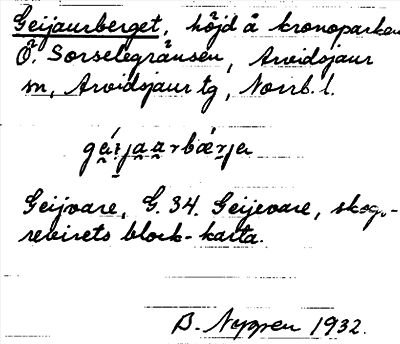 Geijaurberget, höjd å kronoparken
Ö. Sorselegränsen, Arvidsjaur
sn, Arvidsjaur tg, Norrb. l.
gá̰ɪ̯ja̰a̰rbǽrja
Geijvare, G. 34. Geijevare, skogs-
revirets block-karta.
B. Nygren 1932.